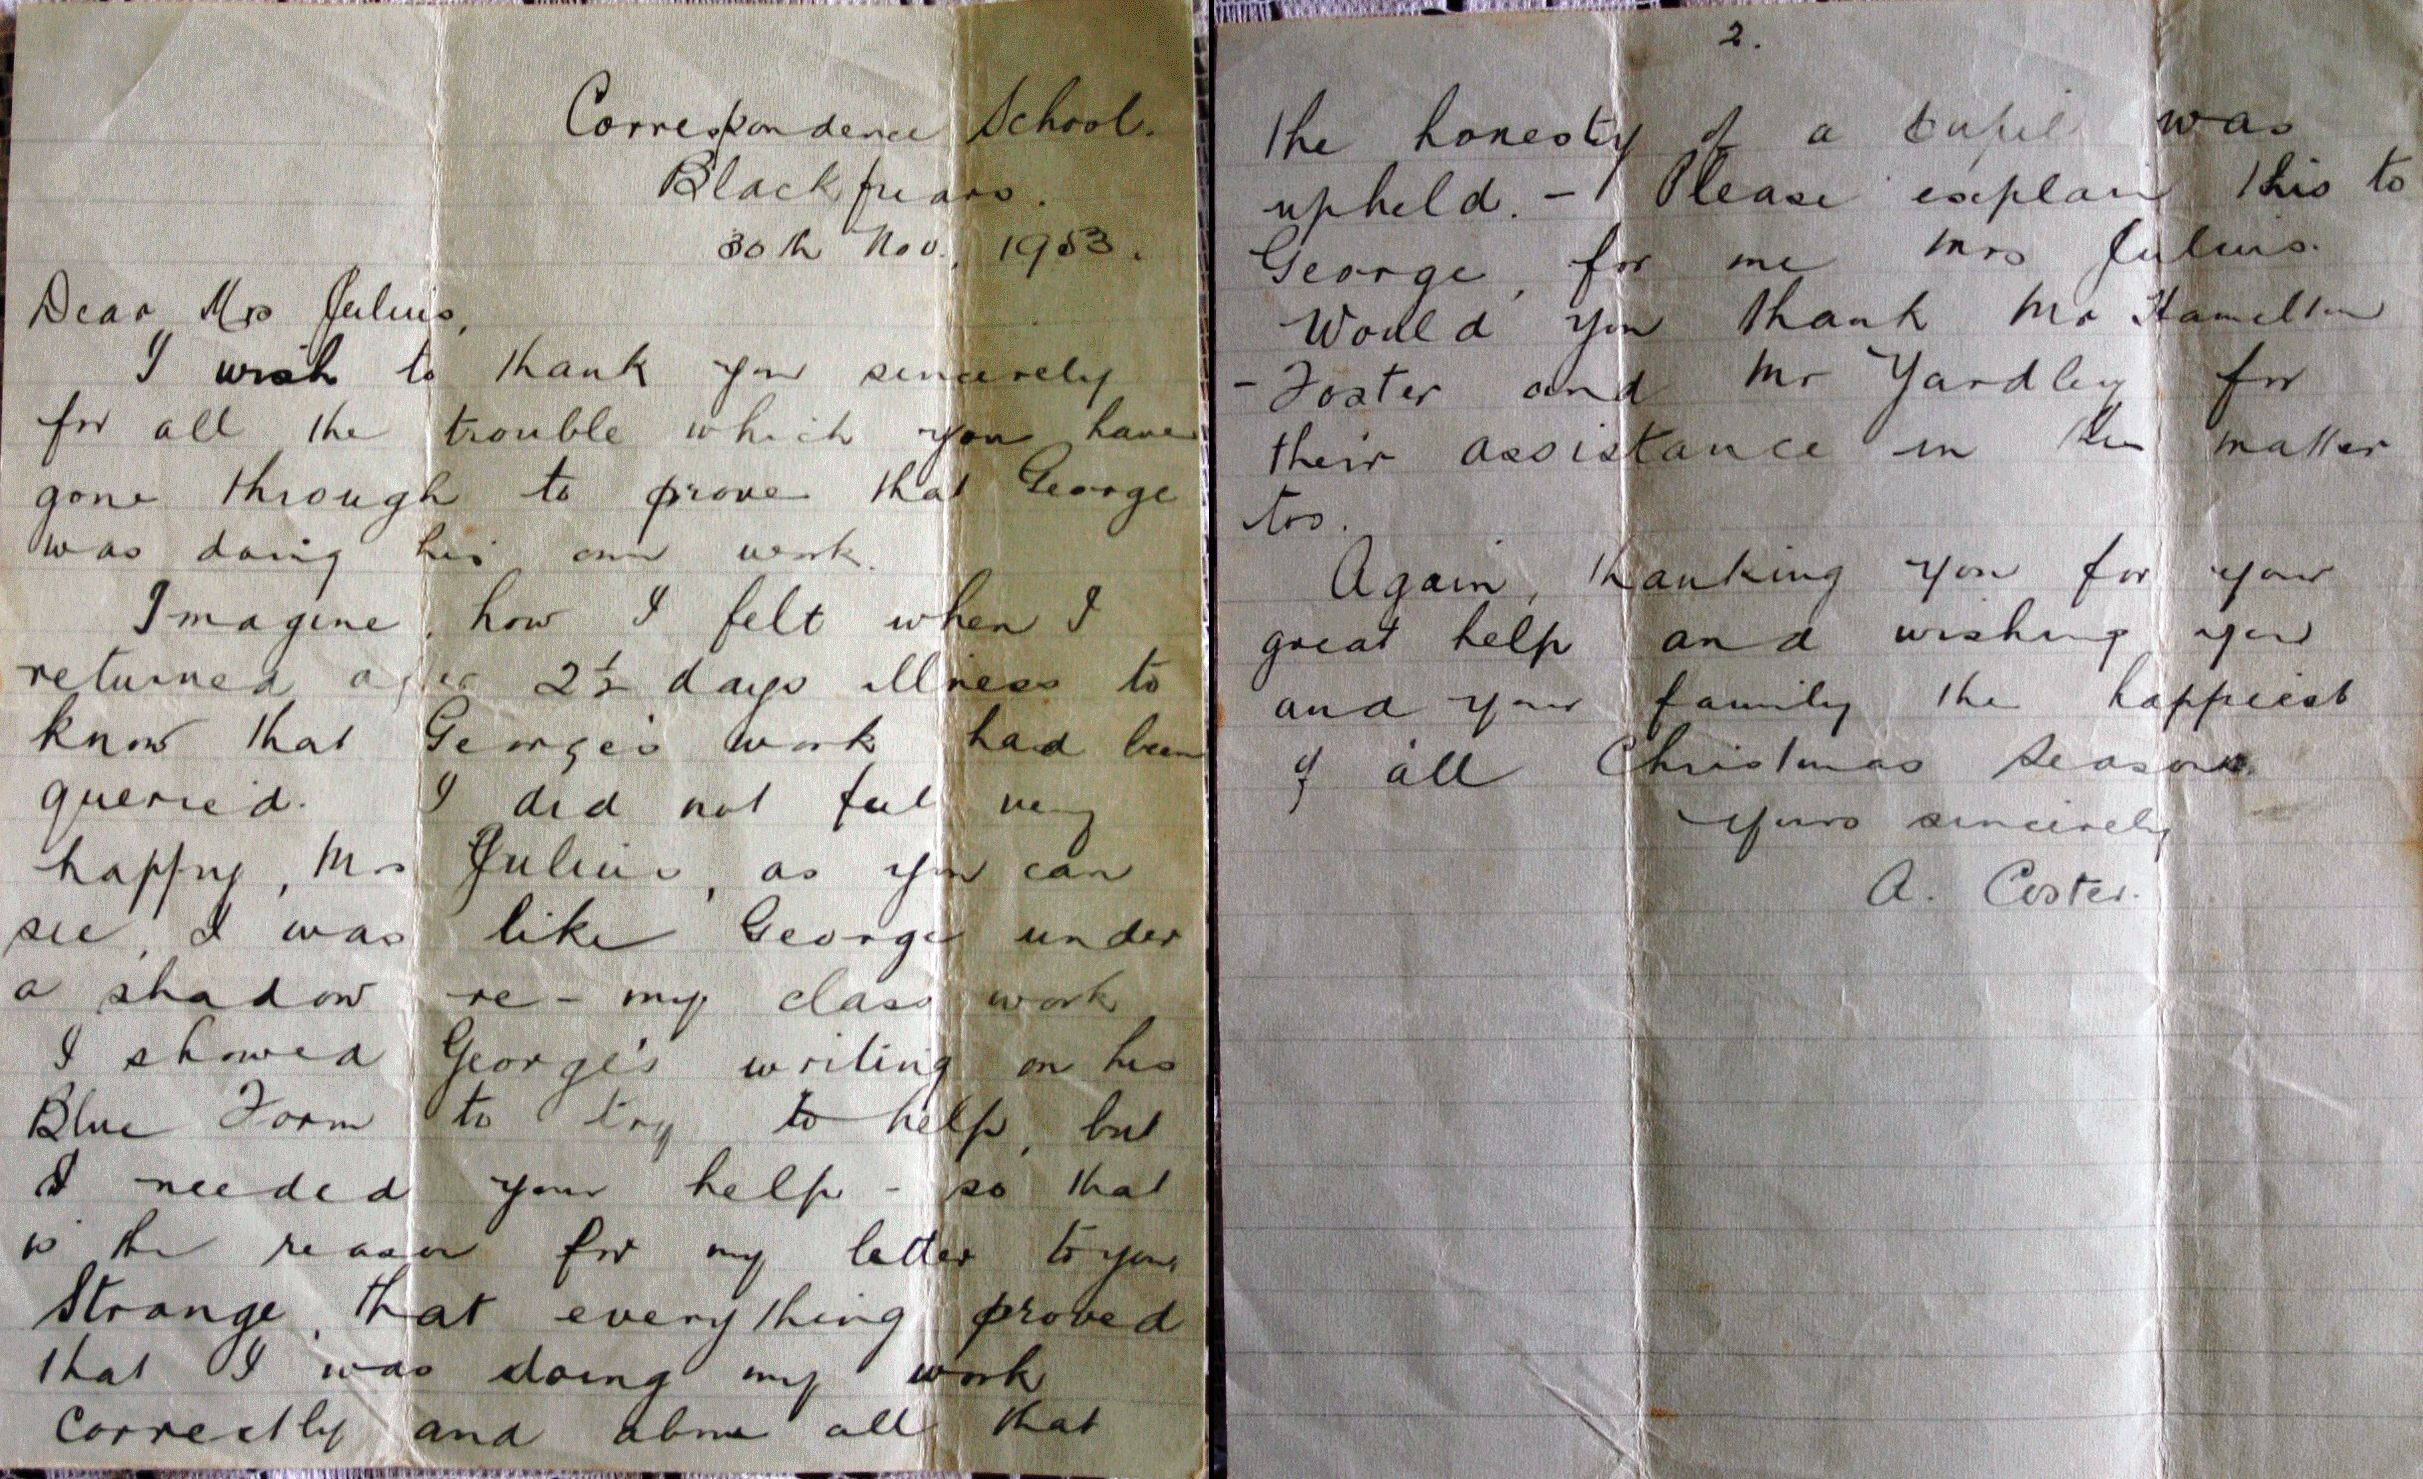 Correspondence School.
Blackfriars.
30th Nov., 1953.
Dear Mrs Julius,
I wish to thank you sincerely
for all the trouble which you have
gone through to prove that George
was doing his own work.
Imagine, how I felt when I
returned after 2½ days illness to
know that George's work had been
queried. I did not feel very
happy, Mrs Julius, as you can
see, I was like George under
a shadow re - my class work
I showed George's writing on his
Blue Form to try to help, but
I needed your help - so that
is the reason for my letter to you,
Strange, that everything proved
that I was doing my work
correctly and above all that
2.
the honesty of a pupil was
upheld. - Please explain this to
George, for me Mrs Julius.
Would you thank Mr Hamelton
- Foster and Mr Yardley for
their assistance in the matter
too.
Again, thanking you for your
great help and wishing you
and your family the happiest
of all Christmas Seasons.
Yours sincerely
A. Coster.